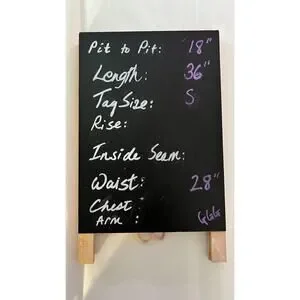 Pit to Pit: 18"
Length: 36"
Tag Size: S
Rise:
Inside Seam:
Waist: 28"
Chest:
ARM :